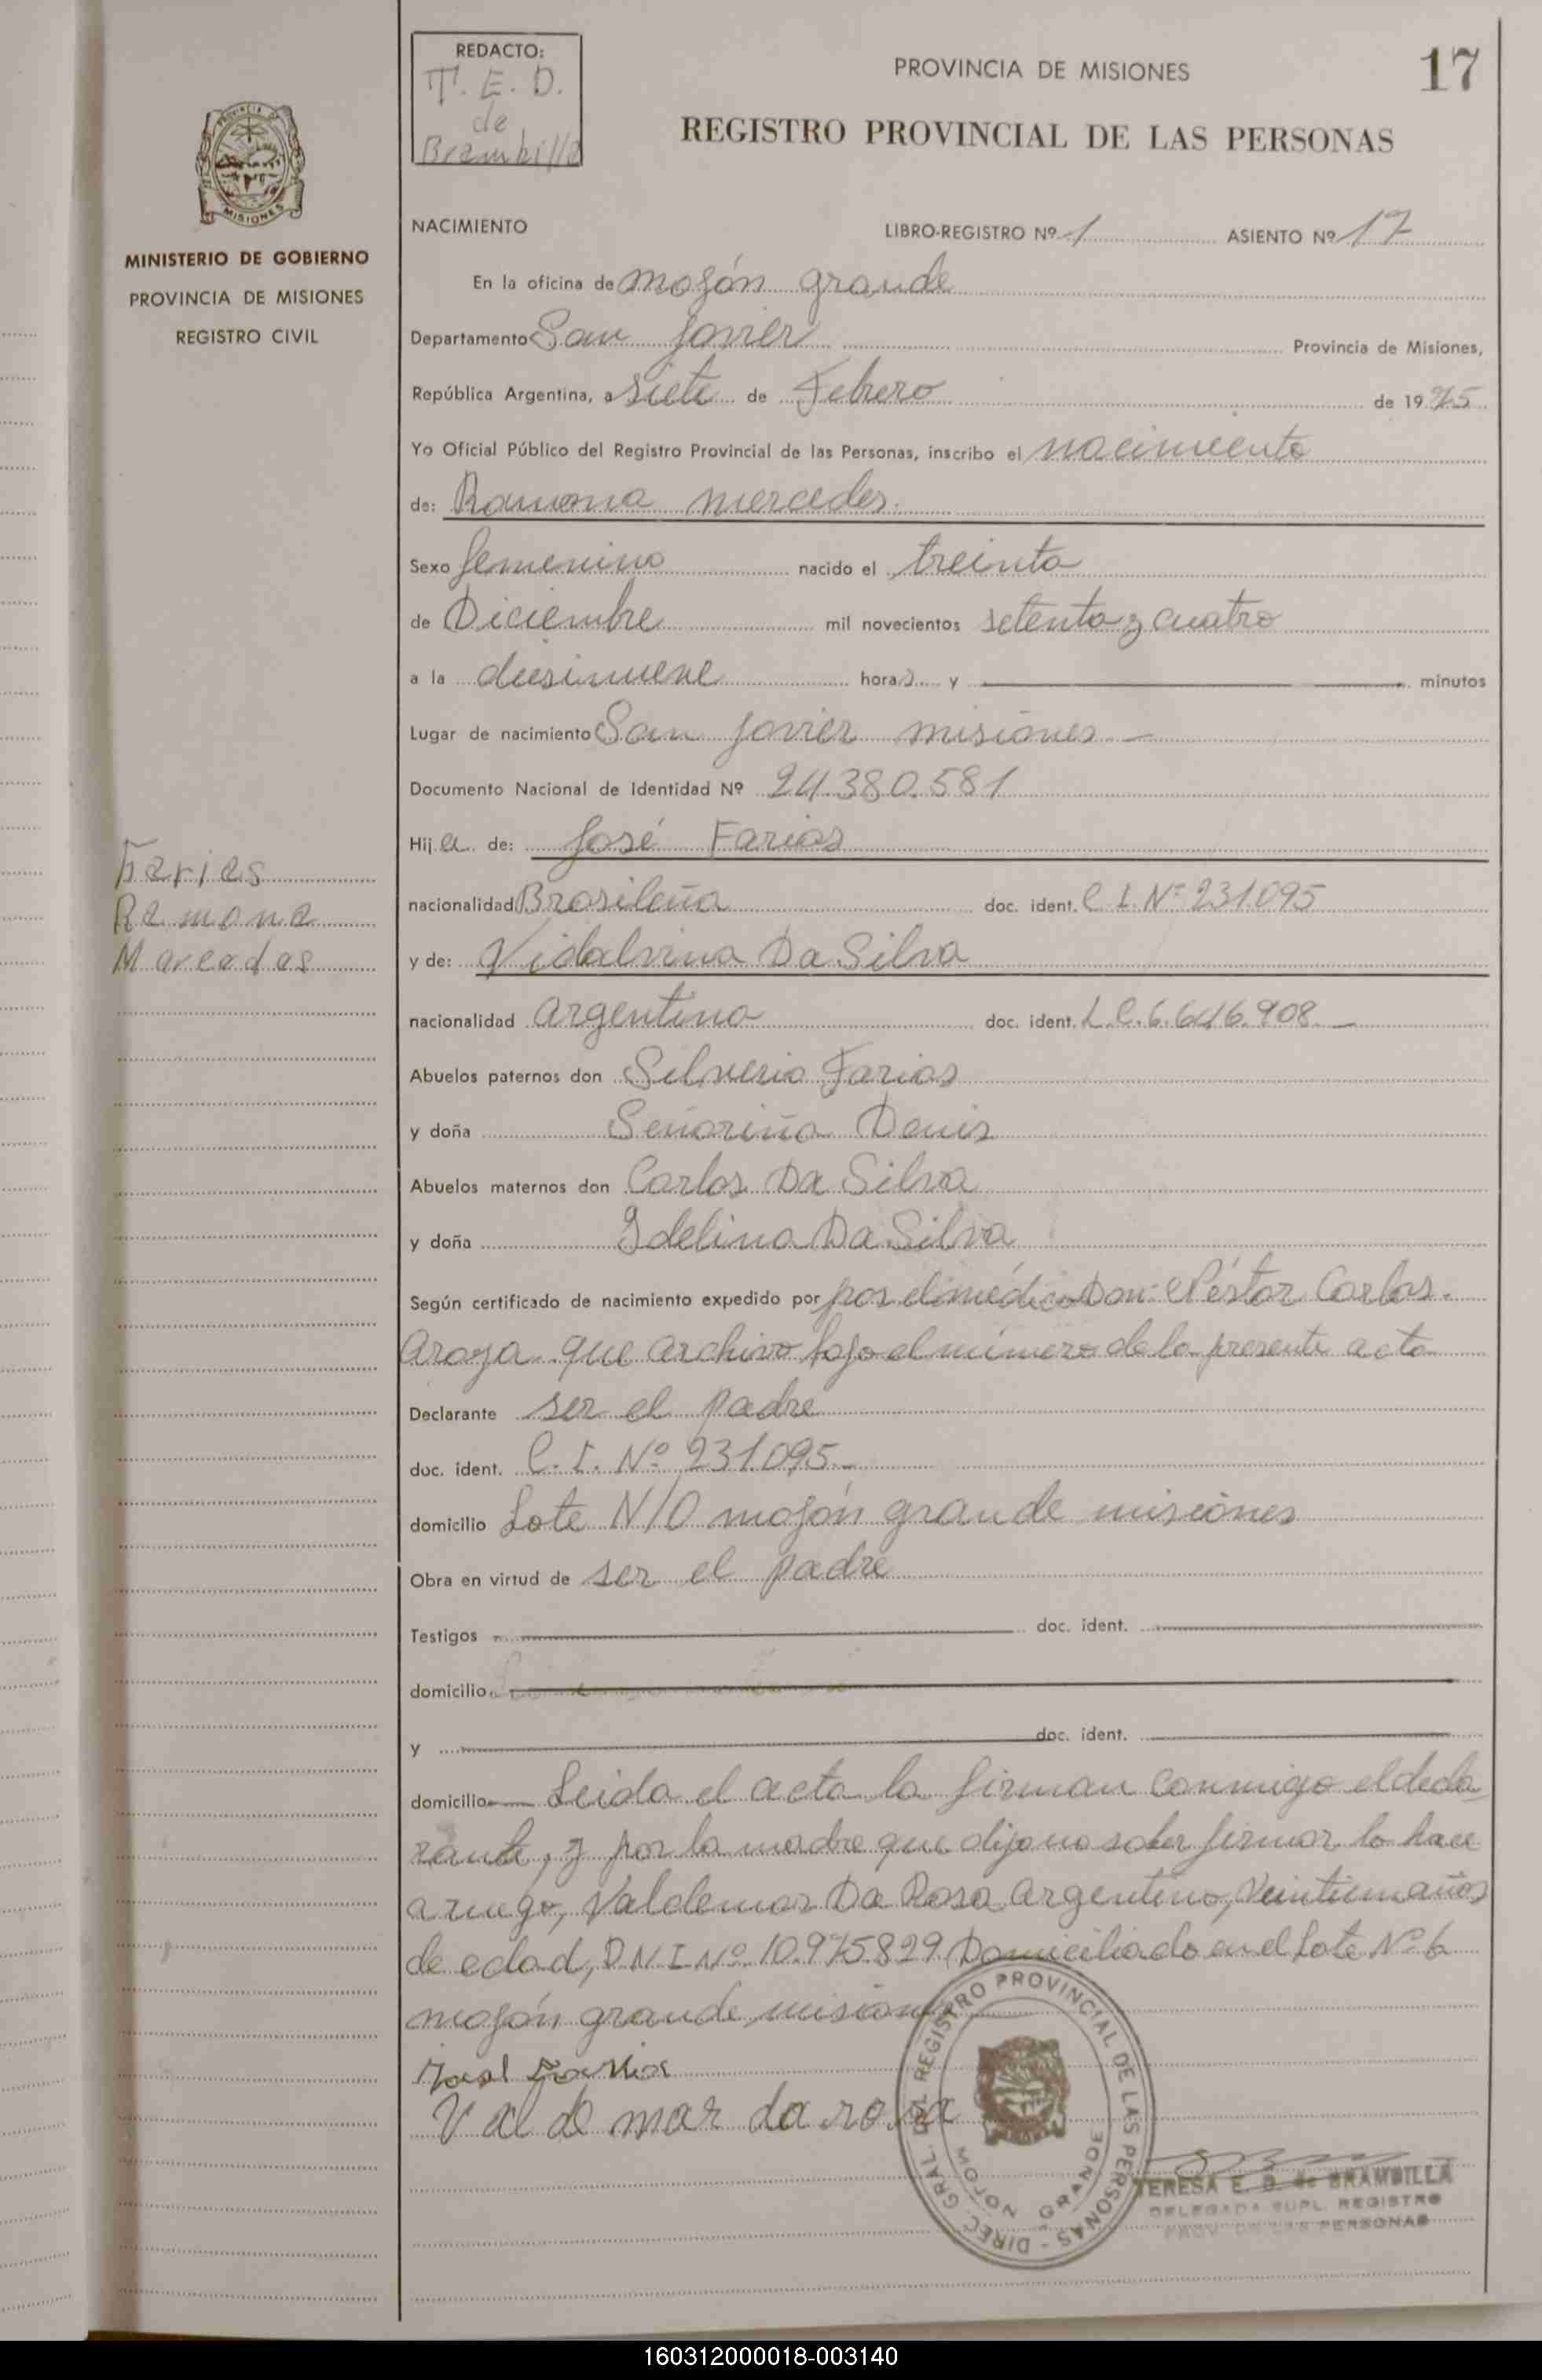 REDACTO:
T. E. D.
de
Brambilla
PROVINCIA DE MISIONES
17
REGISTRO PROVINCIAL DE LAS PERSONAS
MISIONES
MINISTERIO DE GOBIERNO
PROVINCIA DE MISIONES
REGISTRO CIVIL
NACIMIENTO LIBRO-REGISTRO Nº 1 ASIENTO Nº 17
En la oficina de mojón grande
Departamento San Javier Provincia de Misiones,
República Argentina, a siete de Febrero de 1975
Yo Oficial Público del Registro Provincial de las Personas, inscribo el nacimiento
de: Ramona mercedes.
Sexo femenino nacido el treinta
de Diciembre mil novecientos setenta y cuatro
a la diesinueve horas y minutos
Lugar de nacimiento San Javier misiones
Documento Nacional de Identidad Nº 24.380.581
Hija de: José Farias
Farias
Ramona
Mercedes
nacionalidad Brasileña doc. ident. C.I. Nº 231.095
y de: Vidalvina Da Silva
nacionalidad argentina doc. ident. L.C. 6.616.908
Abuelos paternos don Silverio Farias
y doña Señoriña Denis
Abuelos maternos don Carlos Da Silva
y doña Idelina Da Silva
Según certificado de nacimiento expedido por por el médico Don Néstor Carlos.
Araya que archivo bajo el número de la presente acta
Declarante ser el padre
doc. ident. C. I. Nº 231.095
domicilio Lote N/O mojón grande misiones
Obra en virtud de ser el padre
Testigos doc. ident.
domicilio
y doc. ident.
domicilio Leida el acta la firman conmigo el decla
rante, y por la madre que dijo no saber firmar lo hace
a ruego, Valdemar Da Rosa argentino, veintiun años
de edad, D N I Nº 10.975.829 Domiciliado en el Lote Nº 6
mojón grande misiones
José Farias
Valdemar da rosa
DIREC. GRAL. DEL REGISTRO PROVINCIAL DE LAS PERSONAS
MOJON GRANDE
TERESA E. D. de BRAMBILLA
DELEGADA SUPL. REGISTRO
PROV. DE LAS PERSONAS
160312000018-003140